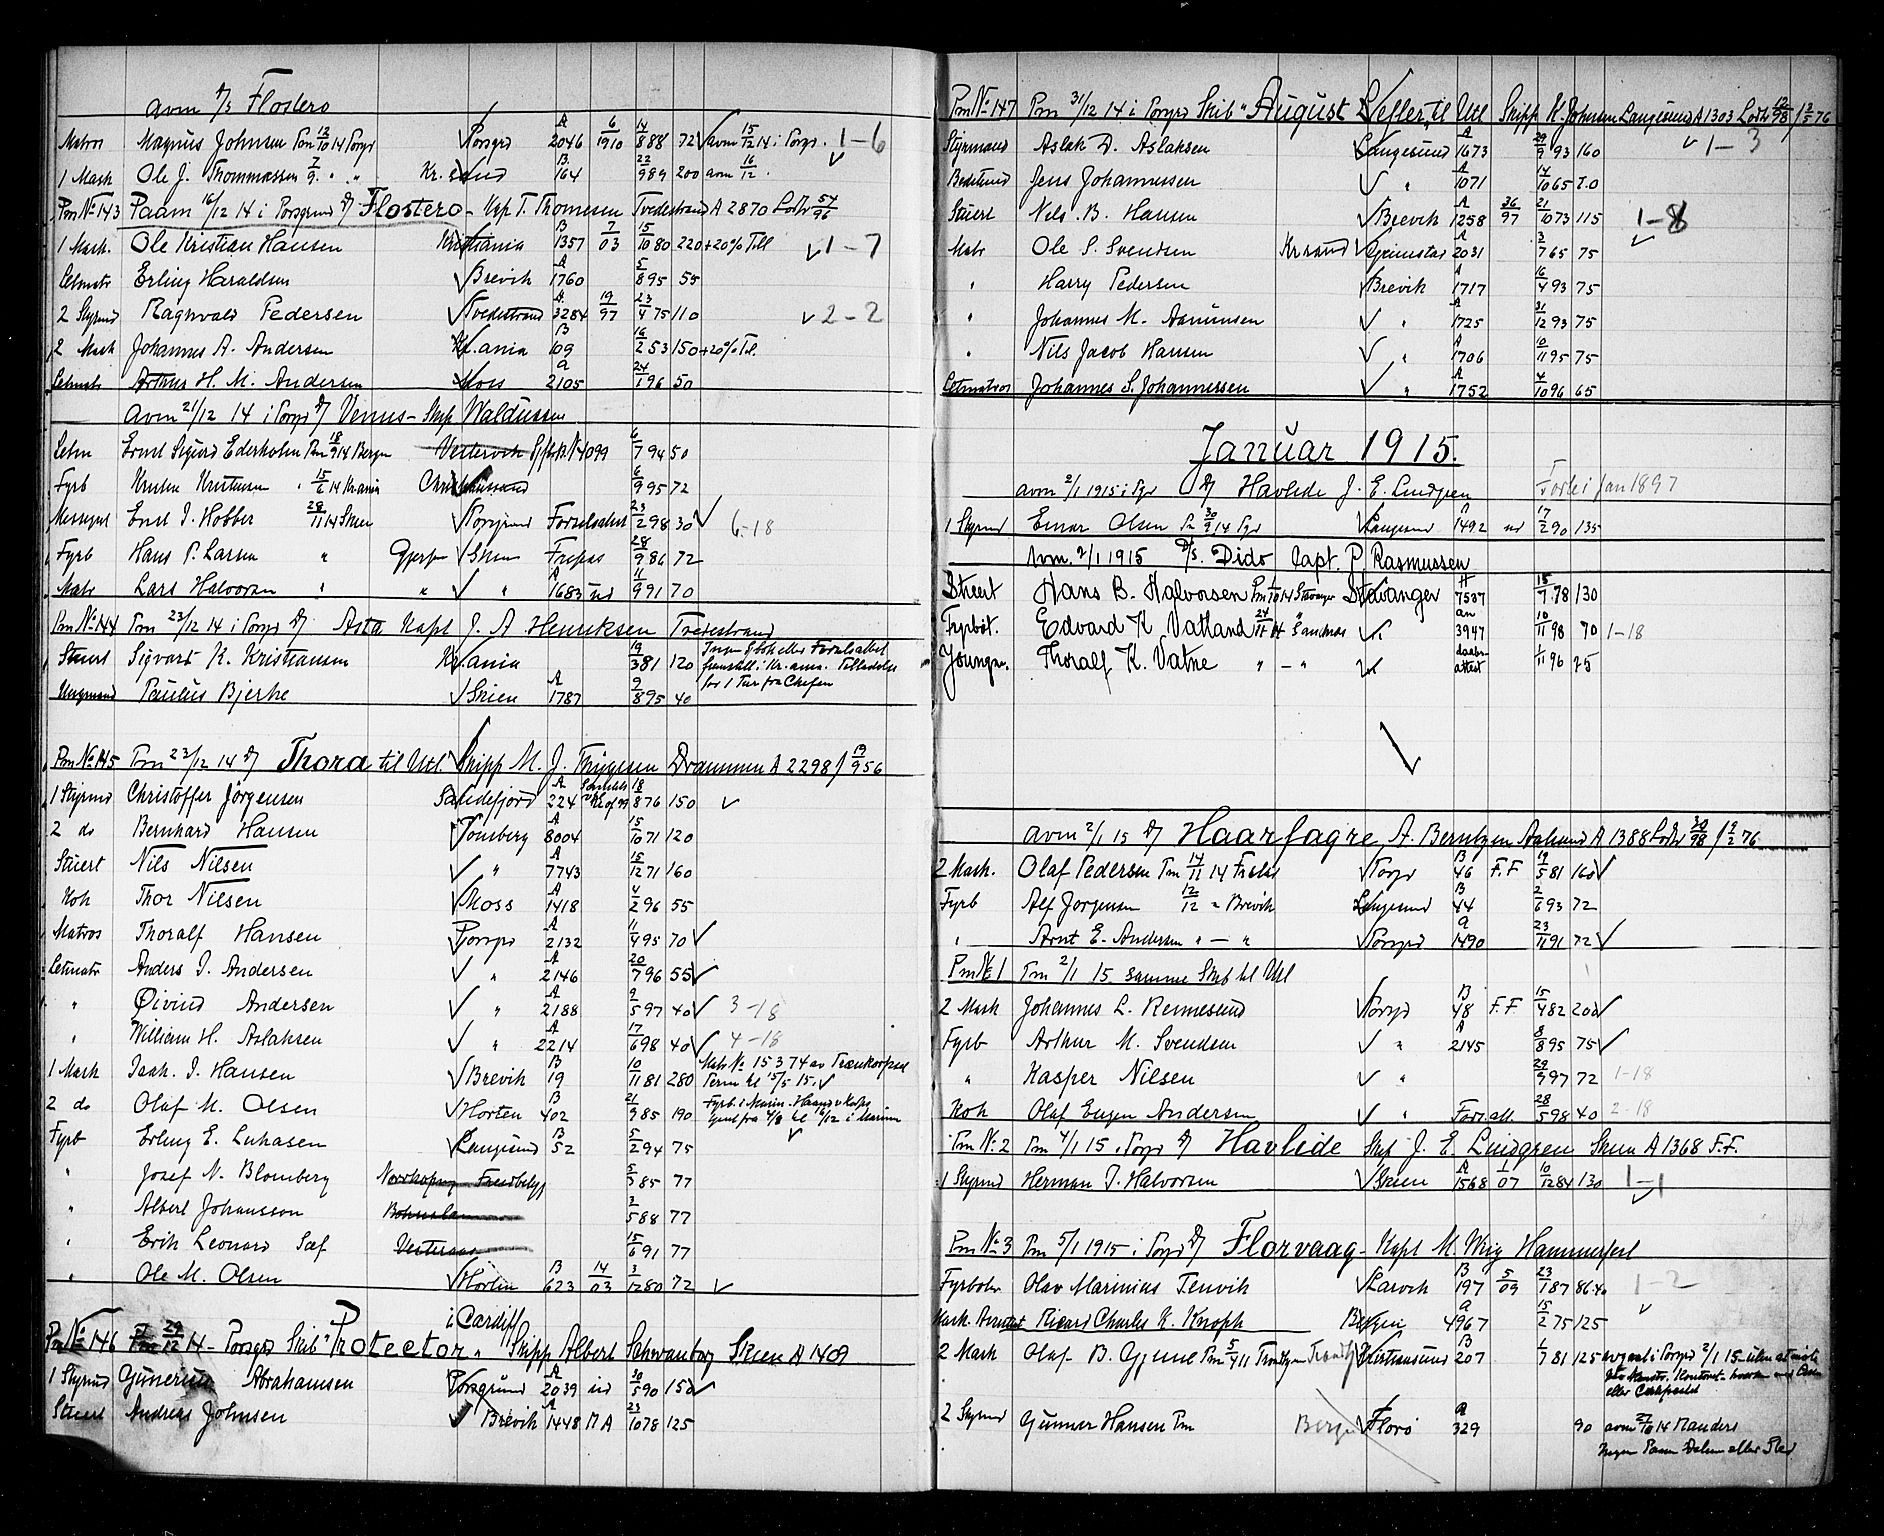 avm D/S Flostero
Matros Magnus Johnsen Pm 13/10 14 Porsgr Porsgrd A 2046 6/1910 14/8 88 72 avm 15/12 14 i Porsgr. 1-6
1 Mask Ole J. Thommassen 7/9 " " Kr.sand B 164 22/9 89 200 avm 16/12
Pm No 143 Paam 16/12 14 i Porsgrund D/S Flostero - Kap T. Thomesen Tvedestrand A 2870 Lodtr 54/96
1 Mask. Ole Kristian Hansen Kristiania B 1357 7/03 15/10 80 220 +20% Till 1-7
Letmatr Erling Haraldsen Brevik A 1760 5/8 95 55
2 Styrmd Ragnvald Pedersen Tvedestrand A 3284 19/97 23/4 75 110 2-2
2 Mask Johannes A. Andersen Kr.ania B 109 16/2 53 150 +20% Til.
Letmatr Arthur H. M. Andersen Moss a 2105 24/1 96 50
avm 21/12 14 i Porsgr D/S Venus - Skip Waldussen
Letm Ernst Sigurd Ederholm Pm 18/9 14 Bergen Vestervik 4099 6/7 94 50
Fyrb Kristen Kristensen " 15/6 14 Kr.ania Christianssand 6/9 95 72
Messegut Emil I. Hobber 28/11 14 Skien Porsgrund Forselsattest 23/2 98 30 6-18
Fyrb Hans P. Larsen " Gjerpen Skien Fripas 28/9 86 72
Matr Lars Halvorsen " " " A 1683 ud 11/9 91 70
Pm No 144 Pm 23/12 14 i Porsgr D/S Asta Kapt J. A Henriksen Tvedestrand
Stuert Sigvard K. Kristiansen Kr.ania 19/3 81 120 Ingen Sbok eller Forselsattest
fremstill. i Kr.ania. Tilladelse
for 1 Tur fra Chefen
Ungmand Paulus Bjerke Skien A 1787 9/8 95 40
Pm No 145 Pm 23/12 14 D/S Thora til Utl. Skipp M. J. Thygesen Drammen A 2298 / 19/9 56
1 Styrmd Christoffer Jørgensen Sandefjord A 224 18/8 76 150
2 do Bernhard Hansen Tonsberg A 8004 15/10 71 120
Stuert Nils Nilsen " A 7743 15/12 71 160
Kok Thor Nilsen Moss A 1418 4/2 96 55
Matros Thoralf Hansen Porsgr A 2132 11/4 95 70
Letmatr Anders I. Andersen " A 2146 20/7 96 55
" Øivind Andersen " A 2188 9/5 97 40 3-18
" William H. Aslaksen " A 2214 17/6 98 40 4-18
1 Mask Isak. I. Hansen Brevik B 19 10/11 81 280 Mab No 15374 av Trænkorpset
Perm til 15/5 15.
2 do Olaf M. Olsen Horten B 402 21/9 85 190 Fyrb. i Marin.
Fyrb Erling E. Lukasen Langesund B 52 5/2 94 75
" Josef N. Blomberg Norrkoping Fredbelys 5/3 85 77
" Albert Johansson Bohuslan 3/5 88 77
" Erik Leonard Saf Vesteraas 15/6 91 77
" Ole M. Olsen Horten B 623 14/03 3/12 80 72
i Cardiff
Pm No 146 29/12 14 - Porsgrd Skib "Protector" Skipp Albert Schwanborg Skien A 1409
1 Styrmd Gunerius Abrahamsen Porsgrund A 2039 ud 30/5 90 150
Stuert Andreas Johnsen Brevik A 1448 M A 23/10 78 125
Pm No 147 Pm 31/12 14 i Porsgrd Skib "August Leffler" til Utl Skipp K. Johnsen Langesund A 1303 Lodtr 12/98 / 2/5 76
Styrmand Aslak D. Aslaksen Langesund A 1673 29/9 93 160 1-3
Bestmnd Jens Johannessen " A 1071 14/10 65
Stuert Nils. B. Hansen Brevik A 1258 36/97 21/10 73 115 1-8
Matr Ole S. Svendsen Kr.sand Grimstad A 2031 3/7 65 75
" Harry Pedersen Brevik A 1717 16/4 93 75
" Johannes M. Asmunsen " A 1725 31/12 93 75
" Nils Jacob Hansen " A 1706 10/11 95 75
Letmatros Johannes S. Johannessen " A 1752 4/10 96 65
Januar 1915.
avm 2/1 1915 i Pgr D/S Havlide J. E. Lindgren Forlei jan 1897
1 Styrmd Einar Olsen Pm 30/9 14 Pgr Langesund A 1492 ud 17/2 90 135
Avm. 2/1 1915 D/S. Dido Capt. P. Rasmussen
Stuert Hans B. Halvorsen Pm 1/10 14 Stavanger Stavanger A 7537 15/7 78 130
Fyrbøt. Edvard K Vatland 24/11 14 Sandnes " an 3947 10/11 98 70 1-18
Youngm. Thoralf K. Vatne " - " " daabs-attest 1/11 96 75
avm 2/1 15 D/S Haarfagre, A. Berntzen Aalesund A 1388 Lodtr 30/98 / 9/2 76
2 Mask. Olaf Pedersen Pm 14/11 14 Fr.stad Porsgr B 46 F.F 19/5 81 160
Fyrb Alf Jorgensen 12/12 " Brevik Langesund B 44 2/6 93 72
" Arnt E. Andersen " — " Porsgr a 1490 23/11 91 72
Pm No 1 Pm 2/1 15 samme Skib til Utl
2 Mask Johannes L. Rennesund Porsgr B 48 F.F 15/4 82 200
Fyrb Arthur M. Svendsen " A 2145 8/8 95 75
" Kasper Nilsen " 29/9 97 72 1-18
Kok Olaf Eugen Andersen " Fors.att. 28/5 98 40 2-18
Pm No. 2 Pm 4/1 15 i Porsgr D/S Havlide Skip J. E. Lindgren Skien A 1368 F.F.
1 Styrmd Herman J. Halvorsen Skien A 1568 1/07 10/12 84 130 1-1
Pm No 3 Pm 5/1 1915 i Porsgr D/S Florvaag - Kapt M. Wiig Hammerfest
Fyrbøter Olav Marinius Tenvik Larvik B 197 5/09 23/1 87 86.40 1-2
Mask. Assistent Ricard Charles K. Knoph Bergen a 4967 15/2 75 125
2 Mask Olaf B. Gjime Pm 5/4 11 Trondhjem Kristiansund B 207 1/7 81 125
2 Styrmd Gunner Hansen Pm Bergen Florø a 329 90 avm 27/10 14 Randers
Ingen Paam Dalen eller Sted